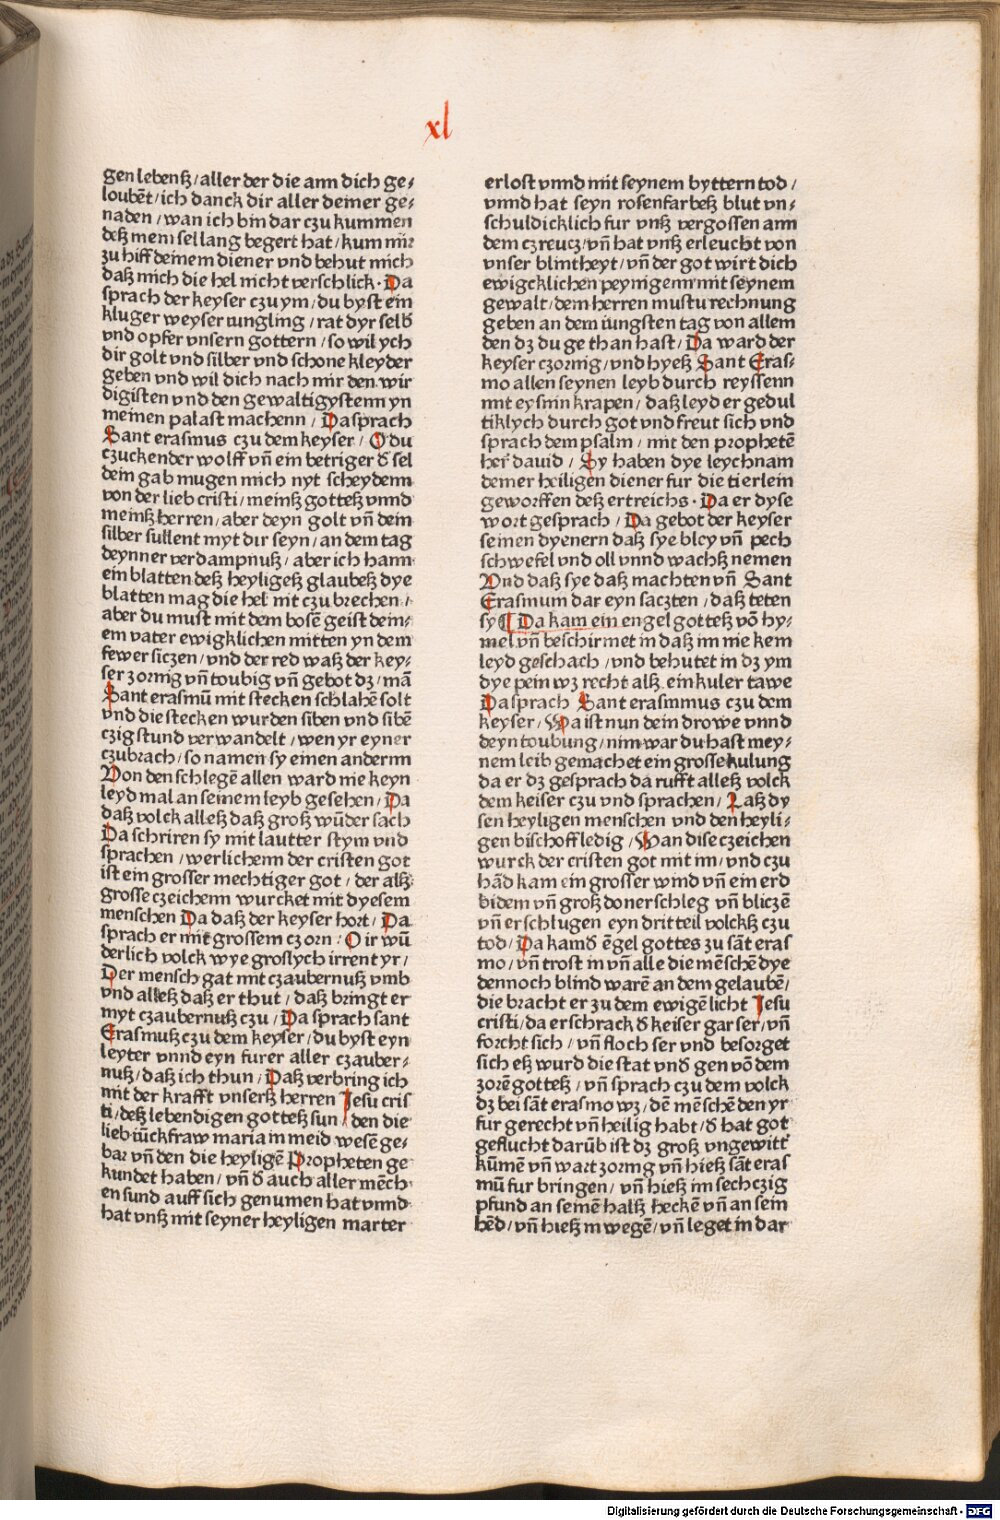 xl
gen lebenß/aller der die ann dich ge⸗
loubēt/ich danck dir aller deiner ge⸗
naden/wan ich bin dar czu kummen
deß mein sel lang begert hat/kum mir
zu hiff deinem diener vnd behut mich
daß mich die hel nicht verschlick·Da
sprach der keyser czu ym/du byst ein
kluger weyser iungling/rat dyr selb
vnd opfer vnsern gottern/so wil ych
dir golt vnd silber vnd schone kleyder
geben vnd wil dich nach mir den wir
digisten vnd den gewaltigystenn yn
meinen palast machenn/Da sprach
Sant erasmus czu dem keyser/O du
czuckender wolff vñ ein betriger d̄ sel
dein gab mugen mich nyt scheydenn
von der lieb cristi/meinß gotteß vnnd
meinß herren/aber deyn golt vñ dein
silber sullent myt dir seyn/an dem tag
deynner verdampnuß/aber ich hann
ein blatten deß heyligeß glaubeß dye
blatten mag die hel nit czu brechen/
aber du must mit dem bosē geist dein⸗
em vater ewigklichen mitten yn dem
fewer siczen/vnd der red waß der key⸗
ser zornig vñ toubig vñ gebot dz/mā
Sant erasmū mit stecken schlahē solt
vnd die stecken wurden siben vnd sibē
czig stund verwandelt/wen yr eyner
czubrach/so namen sy einen anderm
Von den schlegē allen ward nie keyn
leyd mal an seinem leyb gesehen/Da
daß volck alleß daß groß wūder sach
Da schriren sy mit lautter stym vnd
sprachen/werlichenn der cristen got
ist ein grosser mechtiger got/der alß
grosse czeichenn wurcket mit dyesem
menschen Da daß der keyser hort/Da
sprach er mit grossem czorn/O ir wū
derlich volck wye groslych irrent yr/
Der mensch gat mit czaubernuß vmb
vnd alleß daß er thut/daß bringt er
myt czaubernuß czu/Da sprach sant
Erasmuß czu dem keyser/du byst eyn
leyter vnnd eyn furer aller czauber⸗
nuß/daß ich thun/Daß verbring ich
mit der krafft vnserß herren Jesu cris
ti/deß lebendigen gotteß sun/den die
lieb iūckfraw maria in meid wesē ge⸗
bar vñ den die heyligē Propheten ge
kundet haben/vñ d̄ auch aller mēch
en sund auff sich genumen hat vnnd
hat vnß mit seyner heyligen marter
erlost vnnd mit seynem byttern tod/
vnnd hat seyn rosenfarbeß blut vn⸗
schuldicklich fur vnß vergossen ann
dem czreucz/vñ hat vnß erleucht von
vnser blintheyt/vñ der got wirt dich
ewigcklichen peynigenn mit seynem
gewalt/dem herren mustu rechnung
geben an dem iungsten tag von allem
den dz du ge than hast/Da ward der
keyser czornig/vnd hyeß Sant Eras⸗
mo allen seynen leyb durch reyssenn
mit eysnin krapen/daß leyd er gedul
tiklych durch got vnd freut sich vnd
sprach dem psalm/mit den prophetē
her david/Sy haben dye leychnam
deiner heiligen diener fur die tierlein
geworffen deß ertreichs·Da er dyse
wort gesprach/Da gebot der keyser
seinen dyenern daß sye bley vñ pech
schwefel vnd oll vnnd wachß nemen
Vnd daß sye daß machten vñ Sant
Erasmum dar eyn saczten/daß teten
sy¶Da kam ein engel gotteß vō hy⸗
mel vñ beschirmet in daß im nie kein
leyd geschach/vnd behutet in dz ym
dye pein wz recht alß ein kuler tawe
Da sprach Sant erasmmus czu dem
keyser/Wa ist nun dein drowe vnnd
deyn toubung/nim war du hast mey⸗
nem leib gemachet ein grosse kulung
da er dz gesprach da rufft alleß volck
dem keiser czu vnd sprachen/Laß dy
sen heyligen menschen vnd den heyli⸗
gen bischoff ledig/Wan dise czeichen
wurck der cristen got mit im/vnd czu
hād kam ein grosser wind vñ ein erd
bidem vñ groß donerschleg vñ bliczē
vñ erschlugen eyn dritteil volckß czu
tod/Da kam d̄ ēgel gottes zu sāt eras
mo/vñ trost in vñ alle die mēschē dye
dennoch blind warē an dem gelaubē/
die bracht er zu dem ewigē licht Jesu
cristi/da erschrack d̄ keiser gar ser/vñ
forcht sich/vñ floch ser vnd besorget
sich eß wurd die stat vnd̄ gen vō dem
zorē gotteß/vñ sprach czu dem volck
dz bei sāt erasmo wz/dē mēschē den yr
fur gerecht vñ heilig habt/d̄ hat got
geflucht darūb ist dz groß vngewitt̄
kūmē vñ wart zornig vñ hieß sāt eras
mū fur bringen/vñ hieß im sechczig
pfund an seinē halß heckē vñ an sein
hēd/vñ hieß in wegē/vñ leget in dar
Digitalisierung gefördert durch die Deutsche Forschungsgemeinschaft - DFG